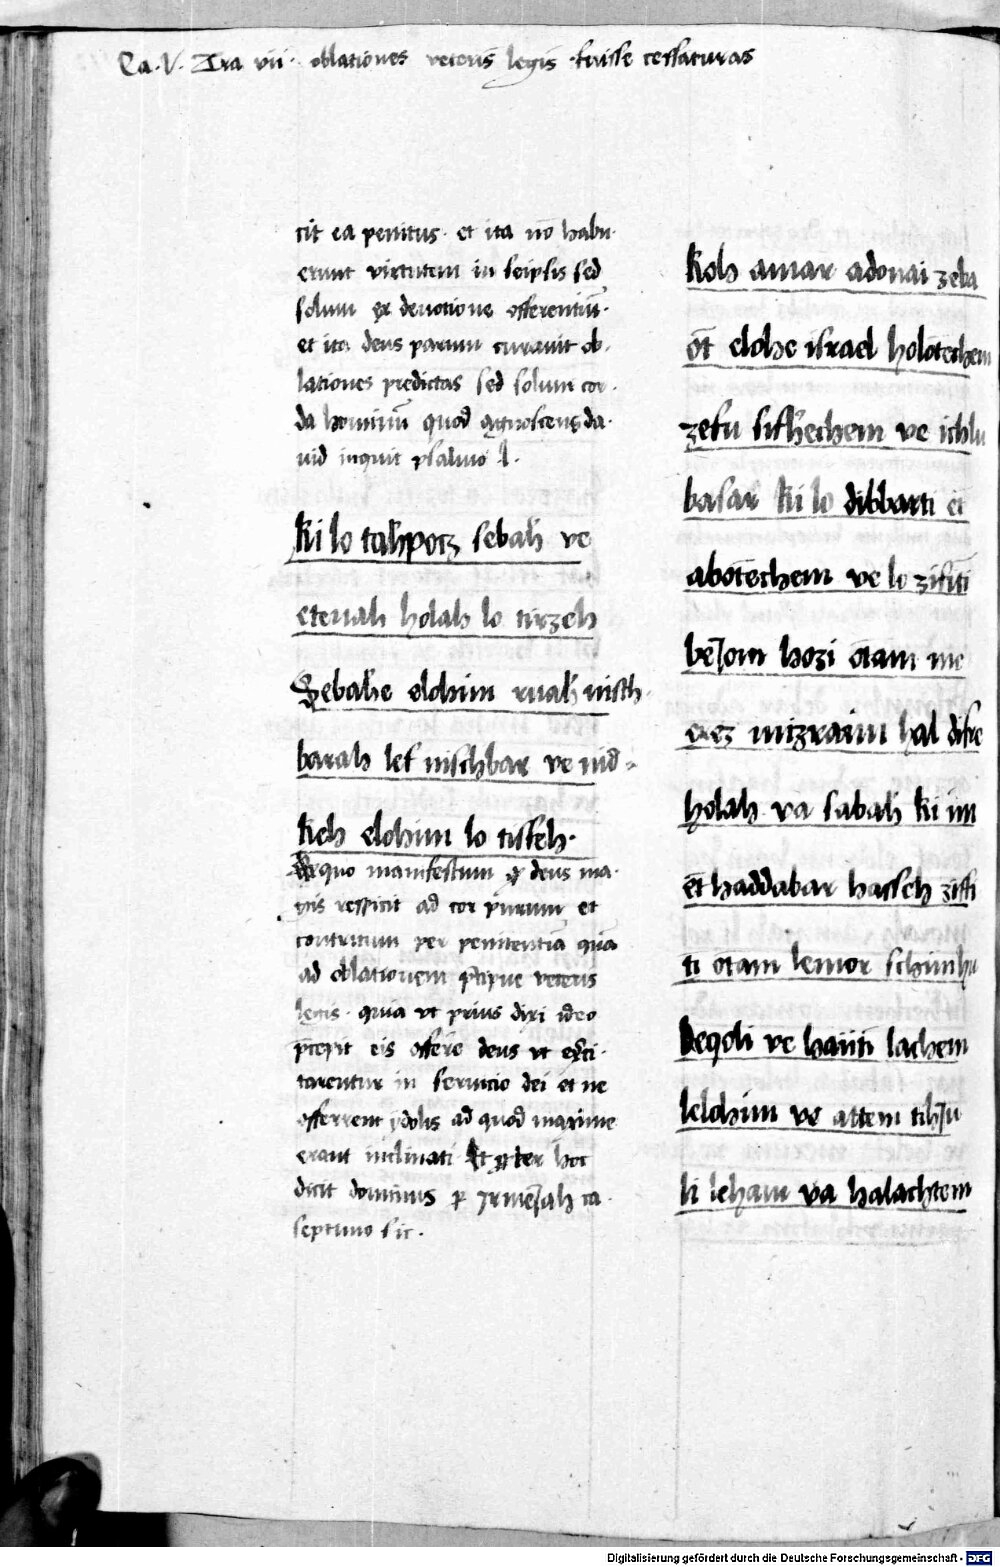 Ca. V. Tra vii. oblationes veteris legis fuisse cessaturas
cit ea penitus. et ita nō habu
erunt virtutem in seipsis sed
solum ex deuotione offerentiū.
et ita deus parum curauit ob.
lationes predictas sed solum cor.
da hominū quod agnoscens da.
uid inquit psalmo l.
ki lo tahpotz sebah ve
etenah holah lo tirzeh
Sebahe elohim ruah nisch.
barah lef nischbar ve nid
keh elohim lo tisseh.
Ex quo manifestum ꝙ deus ma.
gis respicit ad cor purum et
contritum per penitentiā quā
ad oblationem p̄cipue veteris
legis. quia vt prius dixi ideo
p̄cepit eis offere deus vt exci.
tarentur in seruicio dei et ne
offerrent ydolis ad quod maxime
erant inclinati Et ꝓpter hoc
dicit dominus ꝑ Jrmeiah ca.
septimo sic.
Koh amar adonai zeba
ōt elohe israel holōtechem
zefu sifhechem ve ichlu
basar ki lo dibbarti et
abōtechem ve lo zifiti
beiom hozi ōtam me
erez mizraim hal difre
holah va sabah ki im
et haddabar hasseh ziffi
ti otam lemor schimhu
beqoli ve haiiti lachem
lelohim ve attem tihiu
li leham va halachtem
Digitalisierung gefördert durch die Deutsche Forschungsgemeinschaft - DFG